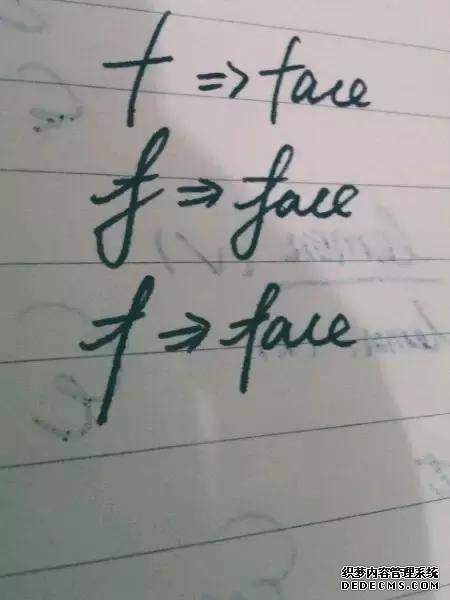 f ⇒ face
f ⇒ face
f ⇒ face
织梦内容管理系统
DEDECMS.COM